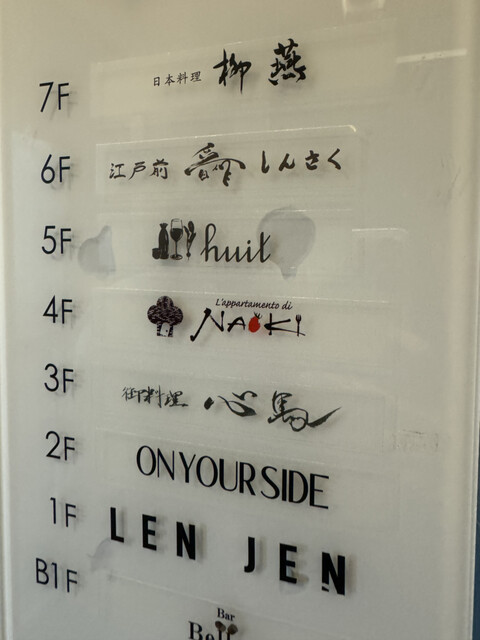 7F 日本料理 柳燕
6F 江戸前 しんさく
5F huit
4F L'appartamento di NAOKI
3F 御料理 心馬
2F ON YOUR SIDE
1F LEN JEN
B1F
Bar